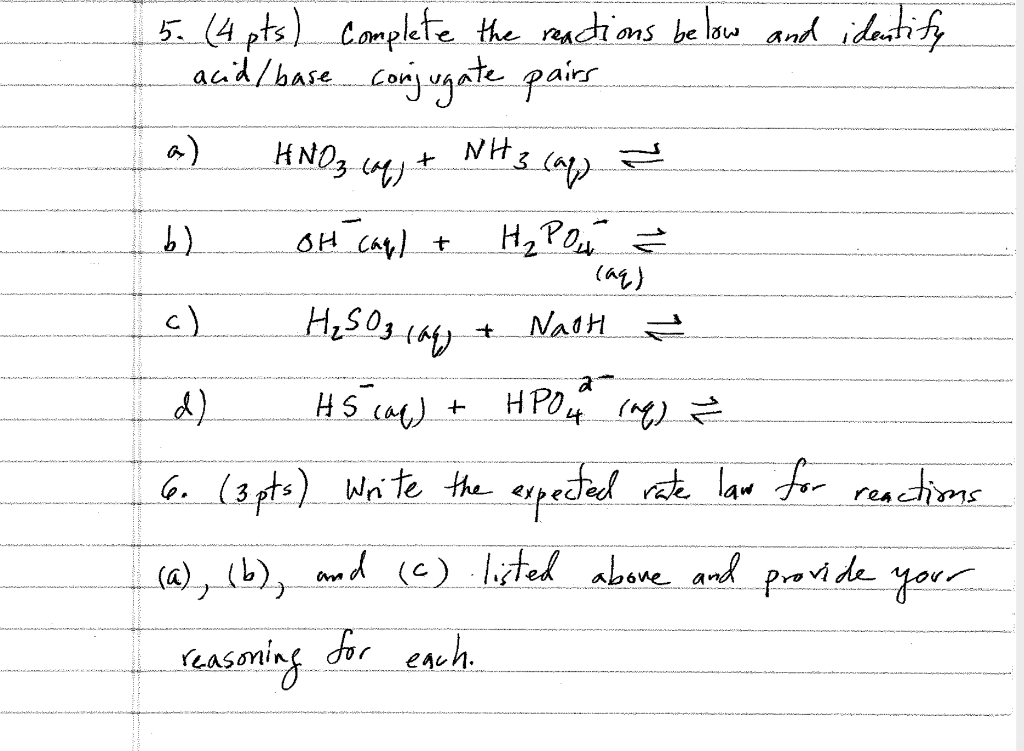 5. (4 pts) Complete the reactions below and identify
acid/base conjugate pairs
a) HNO₃ (aq) + NH₃ (aq) ⇌
b) OH⁻ (aq) + H₂PO₄⁻ ⇌
(aq)
c) H₂SO₃ (aq) + NaOH ⇌
d) HS⁻ (aq) + HPO₄²⁻ (aq) ⇌
6. (3 pts) Write the expected rate law for reactions
(a), (b), and (c) listed above and provide your
reasoning for each.